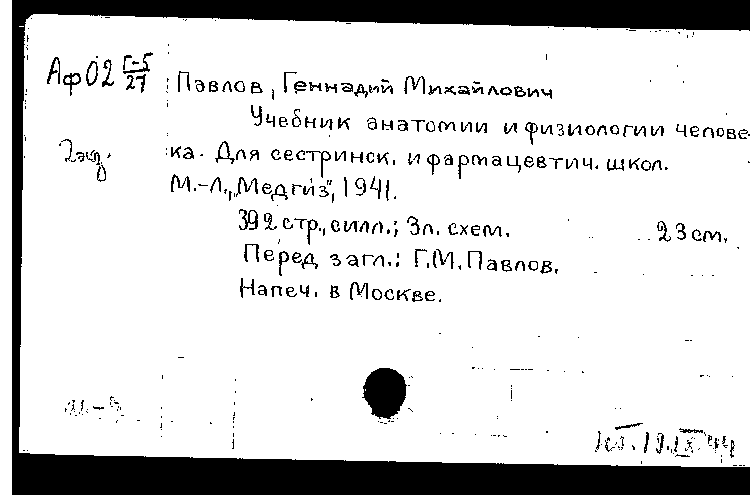 Аф02 Г-5/27
Павлов, Геннадий Михайлович
Учебник анатомии и физиологии челове-
ка. Для сестринск. и фармацевтич. школ.
М.-Л., „Медгиз", 1941.
392 стр., с илл.; 3 л. схем. 23 см.
Перед загл.: Г.М. Павлов.
Напеч. в Москве.
19.IX.44